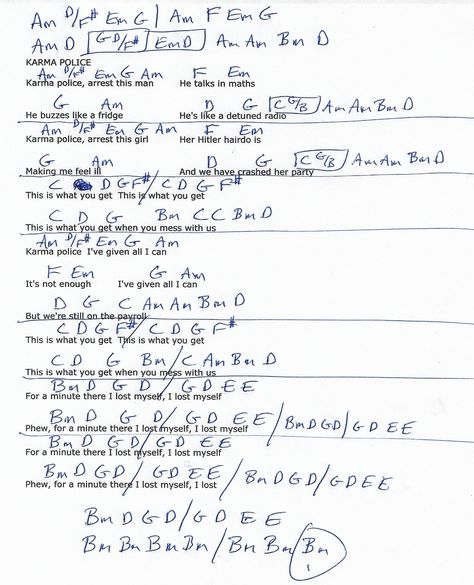 Am D/F# Em G | Am F Em G
Am D G D/F# Em D Am Am Bm D
KARMA POLICE
Am D/F# Em G Am F Em
Karma police, arrest this man He talks in maths
G Am D G C G/B Am Am Bm D
He buzzes like a fridge He's like a detuned radio
Am D/F# Em G Am F Em
Karma police, arrest this girl Her Hitler hairdo is
G Am D G C G/B Am Am Bm D
Making me feel ill And we have crashed her party
C D G F# / C D G F#
This is what you get This is what you get
C D G Bm C C Bm D
This is what you get when you mess with us
Am D/F# Em G Am
Karma police I've given all I can
F Em G Am
It's not enough I've given all I can
D G C Am Am Bm D
But we're still on the payroll
C D G F# / C D G F#
This is what you get This is what you get
C D G Bm / C Am Bm D
This is what you get when you mess with us
Bm D G D / G D E E
For a minute there I lost myself, I lost myself
Bm D G D / G D E E / Bm D G D / G D E E
Phew, for a minute there I lost myself, I lost myself
Bm D G D / G D E E
For a minute there I lost myself, I lost myself
Bm D G D / G D E E / Bm D G D / G D E E
Phew, for a minute there I lost myself, I lost
Bm D G D / G D E E
Bm Bm Bm Bm / Bm Bm / Bm